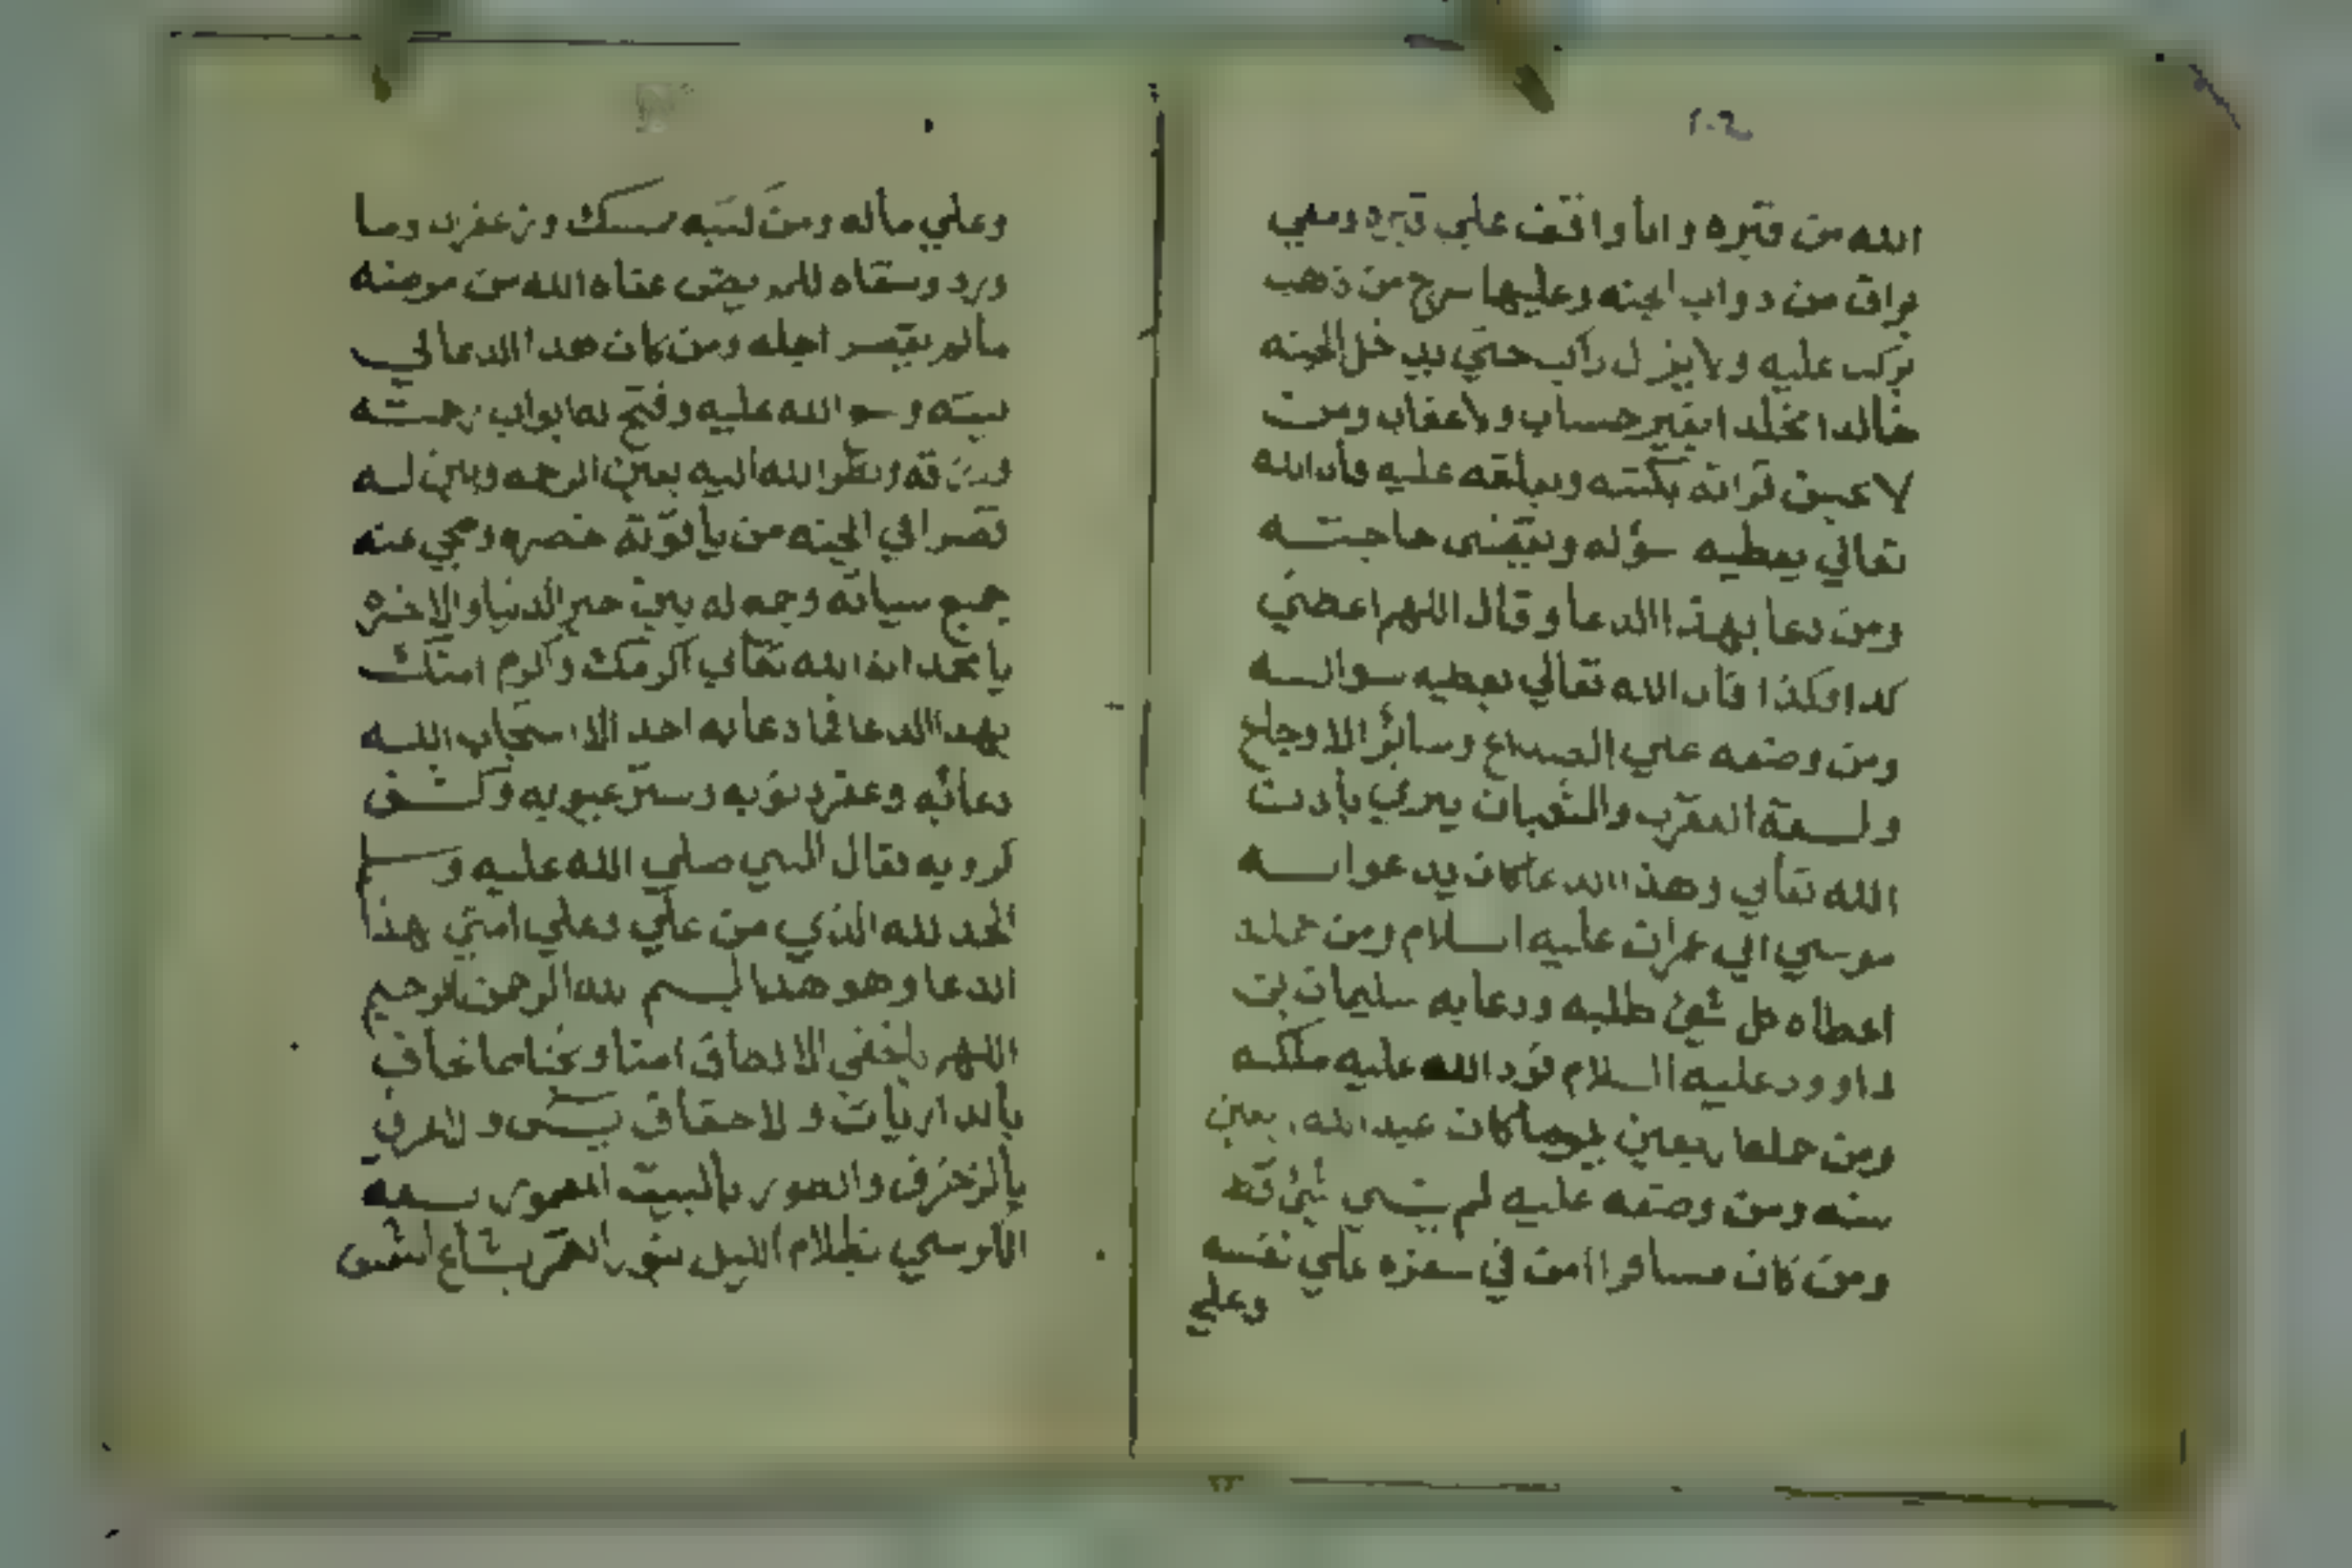 الله من قبره وانا واقف علي قبره وسقي
براق من دواب الجنه وعليها سرج من ذهب
يركب عليه ولا يزل راكب حتي يدخل الجنه
خالدا مخلدا بغير حساب ولا عقاب ومن
لا يحسن قراته يكتبه ويعلقه عليه فان الله
تعالي يعطيه سؤله ويقضى حاجتـــه
ومن دعا بهذا الدعا وقال اللهم اعطني
كدا وكذا فان الله تعالي يعطيه سوالـــه
ومن وضعه علي الصداع وسائر الاوجاع
ولسعة العقرب والثعبان يبري بادن
الله تعالي وهذا الدعا كان يدعوا بـــه
موسي ابن عمران عليه السلام ومن حمله
اعطاه كل شئ طلبه ودعا به سليمان بن
داوود عليه السلام فرد الله عليه ملكه
ومن حملها اربعين يوما كان عبد الله اربعين
سنه ومن وضعه عليه لم ينسي شئ قط
ومن كان مسافرا امن في سفره علي نفسه
وعلي
وعلي ماله ومن كتبه بمسك وزعفران وما
ورد وسقاه للمريض عفاه الله من مرضه
مالم يقصر اجله ومن كان هدا الدعا في
بيته وسع الله عليه وفتح له ابواب رحمته
ورزقه ونظر الله اليه بعين الرحمه وبني لـه
قصرا في الجنه من ياقوتة خضره ومحي عنه
جميع سياته وجمع له بين خير الدنيا والاخره
يا محمد ان الله تعالي اكرمك واكرم امتك
بهدا الدعا فما دعا به احد الا استجاب اللـه
دعائه وغفر دنوبه وستر عيوبه وكشف
كروبه فقال النبي صلي الله عليه وسلم
الحمد لله الذي من علي وعلي امتي هذا
الدعا وهو هدا بسم الله الرحمن الرحيم
اللهم الخفى الالطاف امنا ونجنا مما نخاف
بالداريات والاحقاف بيس و
بالزخرف والطور بالبيت المعمور بسعة
الكرسي بظلام الليل بنور القمر بشعاع الشمس